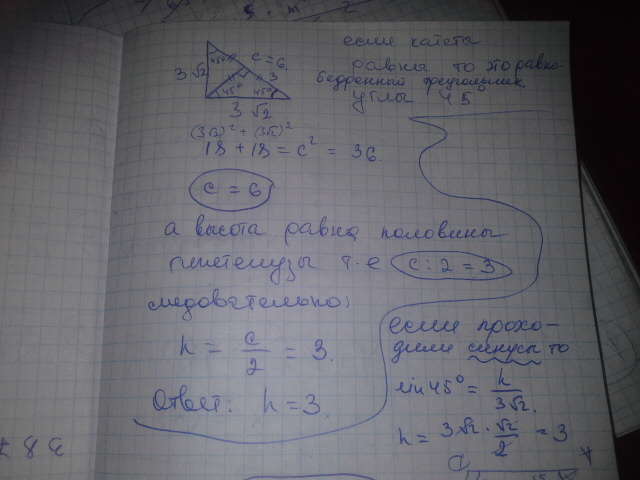 если катеты
равны то это равно
бедренный треугольник
углы 45
3√2
45°
c = 6
3
45°
45°
3√2
(3√2)² + (3√2)²
18 + 18 = c² = 36
c = 6
а высота равна половине
гипотенузы т. е c : 2 = 3
следовательно,
h = c/2 = 3.
Ответ: h = 3.
если прохо-
дили синусы то
sin 45° = h/3√2.
h = 3√2 · √2/2 = 3